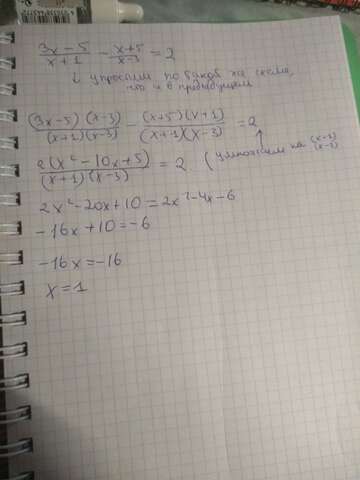 (3x-5)/(x+1) - (x+5)/(x-3) = 2
↓ упростим по такой же схеме,
что и в предыдущем
((3x-5)(x-3))/((x+1)(x-3)) - ((x+5)(x+1))/((x+1)(x-3)) = 2
(2(x²-10x+5))/((x+1)(x-3)) = 2 (умножим на (x-3)/(x-3)
2x²-20x+10=2x²-4x-6
-16x+10=-6
-16x=-16
x=1